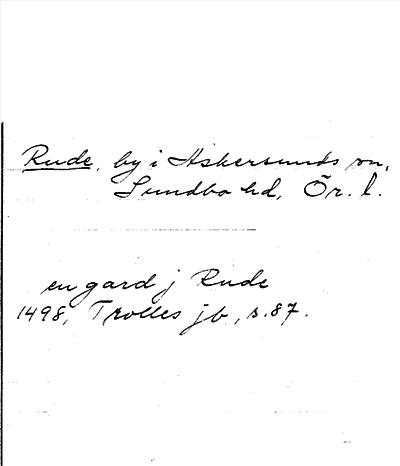 Rude, by i Askersunds sn,
Sundbo hd, Ör. l.
en gard j Rude
1498, Trolles jb, s. 87.